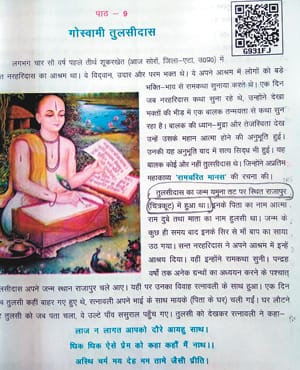 पाठ – 9
G931FJ
गोस्वामी तुलसीदास
लगभग चार सौ वर्ष पहले तीर्थ शूकरखेत (आज सोरों, जिला-एटा, उ०प्र०) में
त नरहरिदास का आश्रम था। वे विद्वान, उदार और परम भक्त थे। वे अपने आश्रम में लोगों को बड़े
भक्ति-भाव से रामकथा सुनाया करते थे। एक दिन
जब नरहरिदास कथा सुना रहे थे, उन्होंने देखा
भक्तों की भीड़ में एक बालक तन्मयता से कथा सुन
रहा है। बालक की ध्यान-मुद्रा और तेजस्विता देख
उन्हें उसके महान आत्मा होने की अनुभूति हुई।
उनकी यह अनुभूति बाद में सत्य सिद्ध भी हुई। यह
बालक कोई और नहीं तुलसीदास थे। जिन्होंने अप्रतिम
महाकाव्य 'रामचरित मानस' की रचना की।
तुलसीदास का जन्म यमुना तट पर स्थित राजापुर
(चित्रकूट) में हुआ था। इनके पिता का नाम आत्मा
राम दुबे तथा माता का नाम हुलसी था। जन्म के
कुछ ही समय बाद इनके सिर से माँ बाप का साया
उठ गया। सन्त नरहरिदास ने अपने आश्रम में इन्हें
आश्रय दिया। वहीं इन्होंने रामकथा सुनी। पन्द्रह
वर्षों तक अनेक ग्रन्थों का अध्ययन करने के पश्चात्
लसीदास अपने जन्म स्थान राजापुर चले आए। यहीं पर उनका विवाह रत्नावली के साथ हुआ। एक दिन
तुलसी कहीं बाहर गए हुए थे, रत्नावली अपने भाई के साथ मायके (पिता के घर) चली गईं। घर लौटने
तुलसी को जब पता चला, वे उल्टे पाँव ससुराल पहुँच गए। तुलसी को देखकर रत्नावली ने कहा-
लाज न लागत आपको दौरे आयहु साथ।
धिक धिक ऐसे प्रेम को कहा कहौं मैं नाथ।।
अस्थि चर्म मय देह मम तामे जैसी प्रीति।